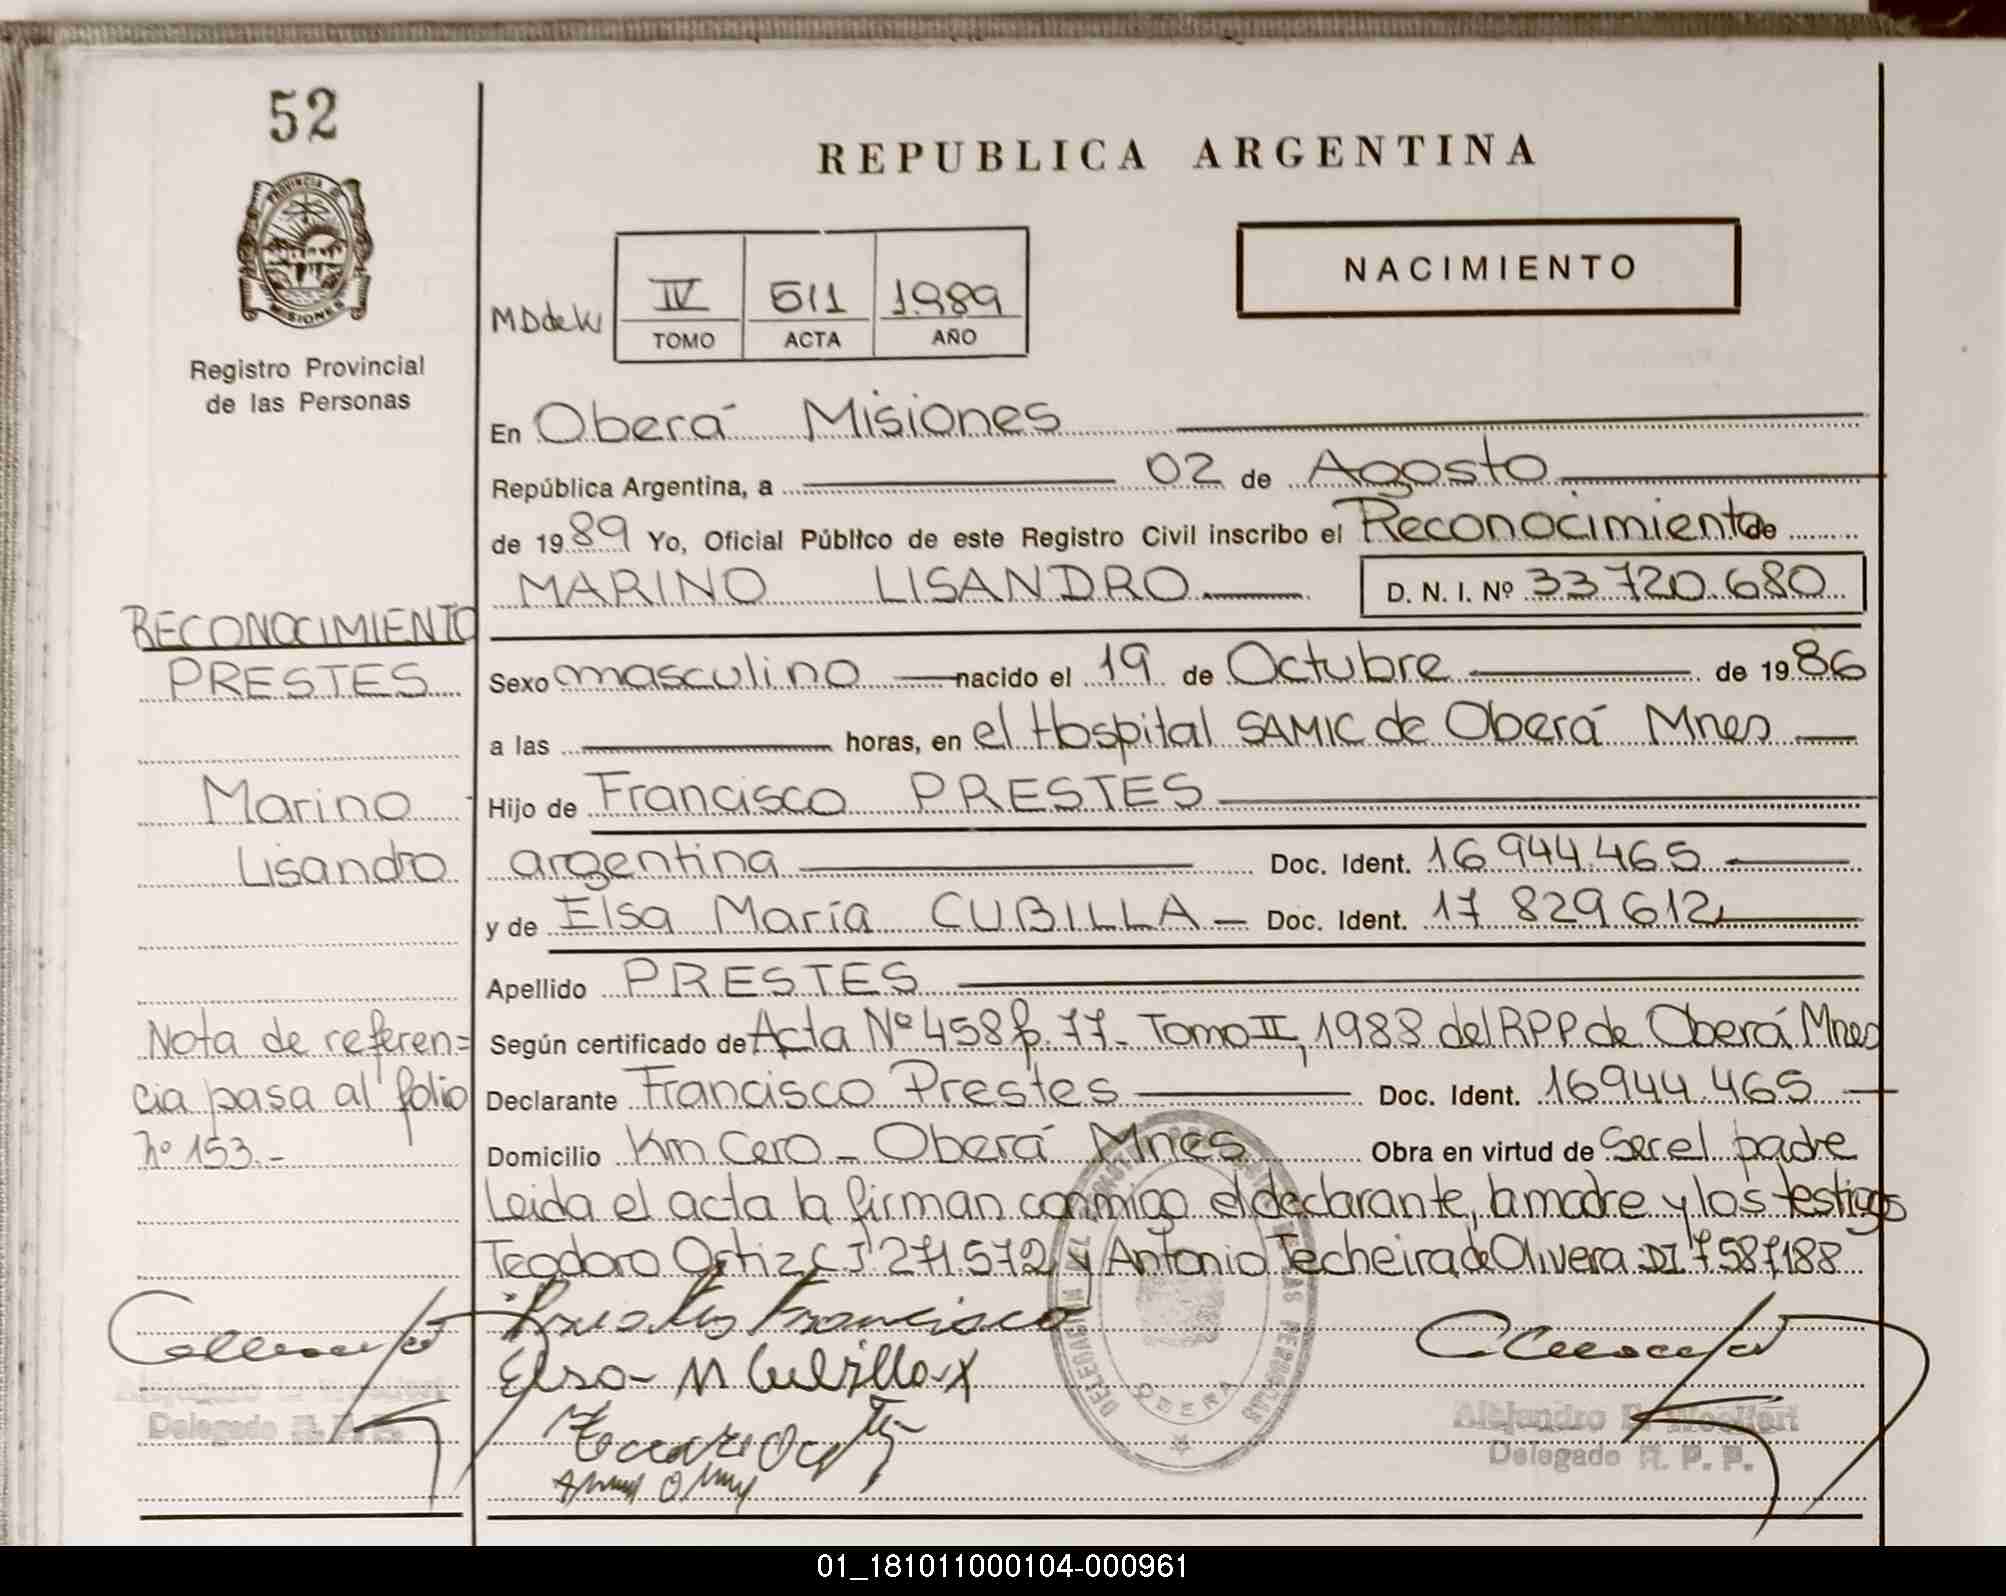 52
REPUBLICA ARGENTINA
PROVINCIA DE
MISIONES
Registro Provincial
de las Personas
NACIMIENTO
IV 511 1989
TOMO ACTA AÑO
En Oberá Misiones
República Argentina, a 02 de Agosto
de 1989 Yo, Oficial Público de este Registro Civil inscribo el Reconocimiento de
MARINO LISANDRO D. N. I. Nº 33 720.680
RECONOCIMIENTO
PRESTES
Marino
Lisandro
Nota de referen=
cia pasa al folio
nº 153.-
Sexo masculino nacido el 19 de Octubre de 1986
a las horas, en el Hospital SAMIC de Oberá Mnes
Hijo de Francisco PRESTES
argentina Doc. Ident. 16.944.465
y de Elsa María CUBILLA Doc. Ident. 17 829612
Apellido PRESTES
Según certificado de Acta Nº 458 f. 77- Tomo II, 1988 del RPP de Oberá Mnes
Declarante Francisco Prestes Doc. Ident. 16944.465
Domicilio Km Cero - Oberá Mnes Obra en virtud de Ser el padre
Leida el acta la firman conmigo el declarante, la madre y los testigos
Teodoro Ortiz CI 271.572 y Antonio Techeira de Olivera DI 7587188
Prestes Francisco
Elsa M Cubilla
DELEGACION DEL DE LAS PERSONAS
OBERA
Delegado R. P. P.
Alejandro
Delegado R. P. P.
01_181011000104-000961